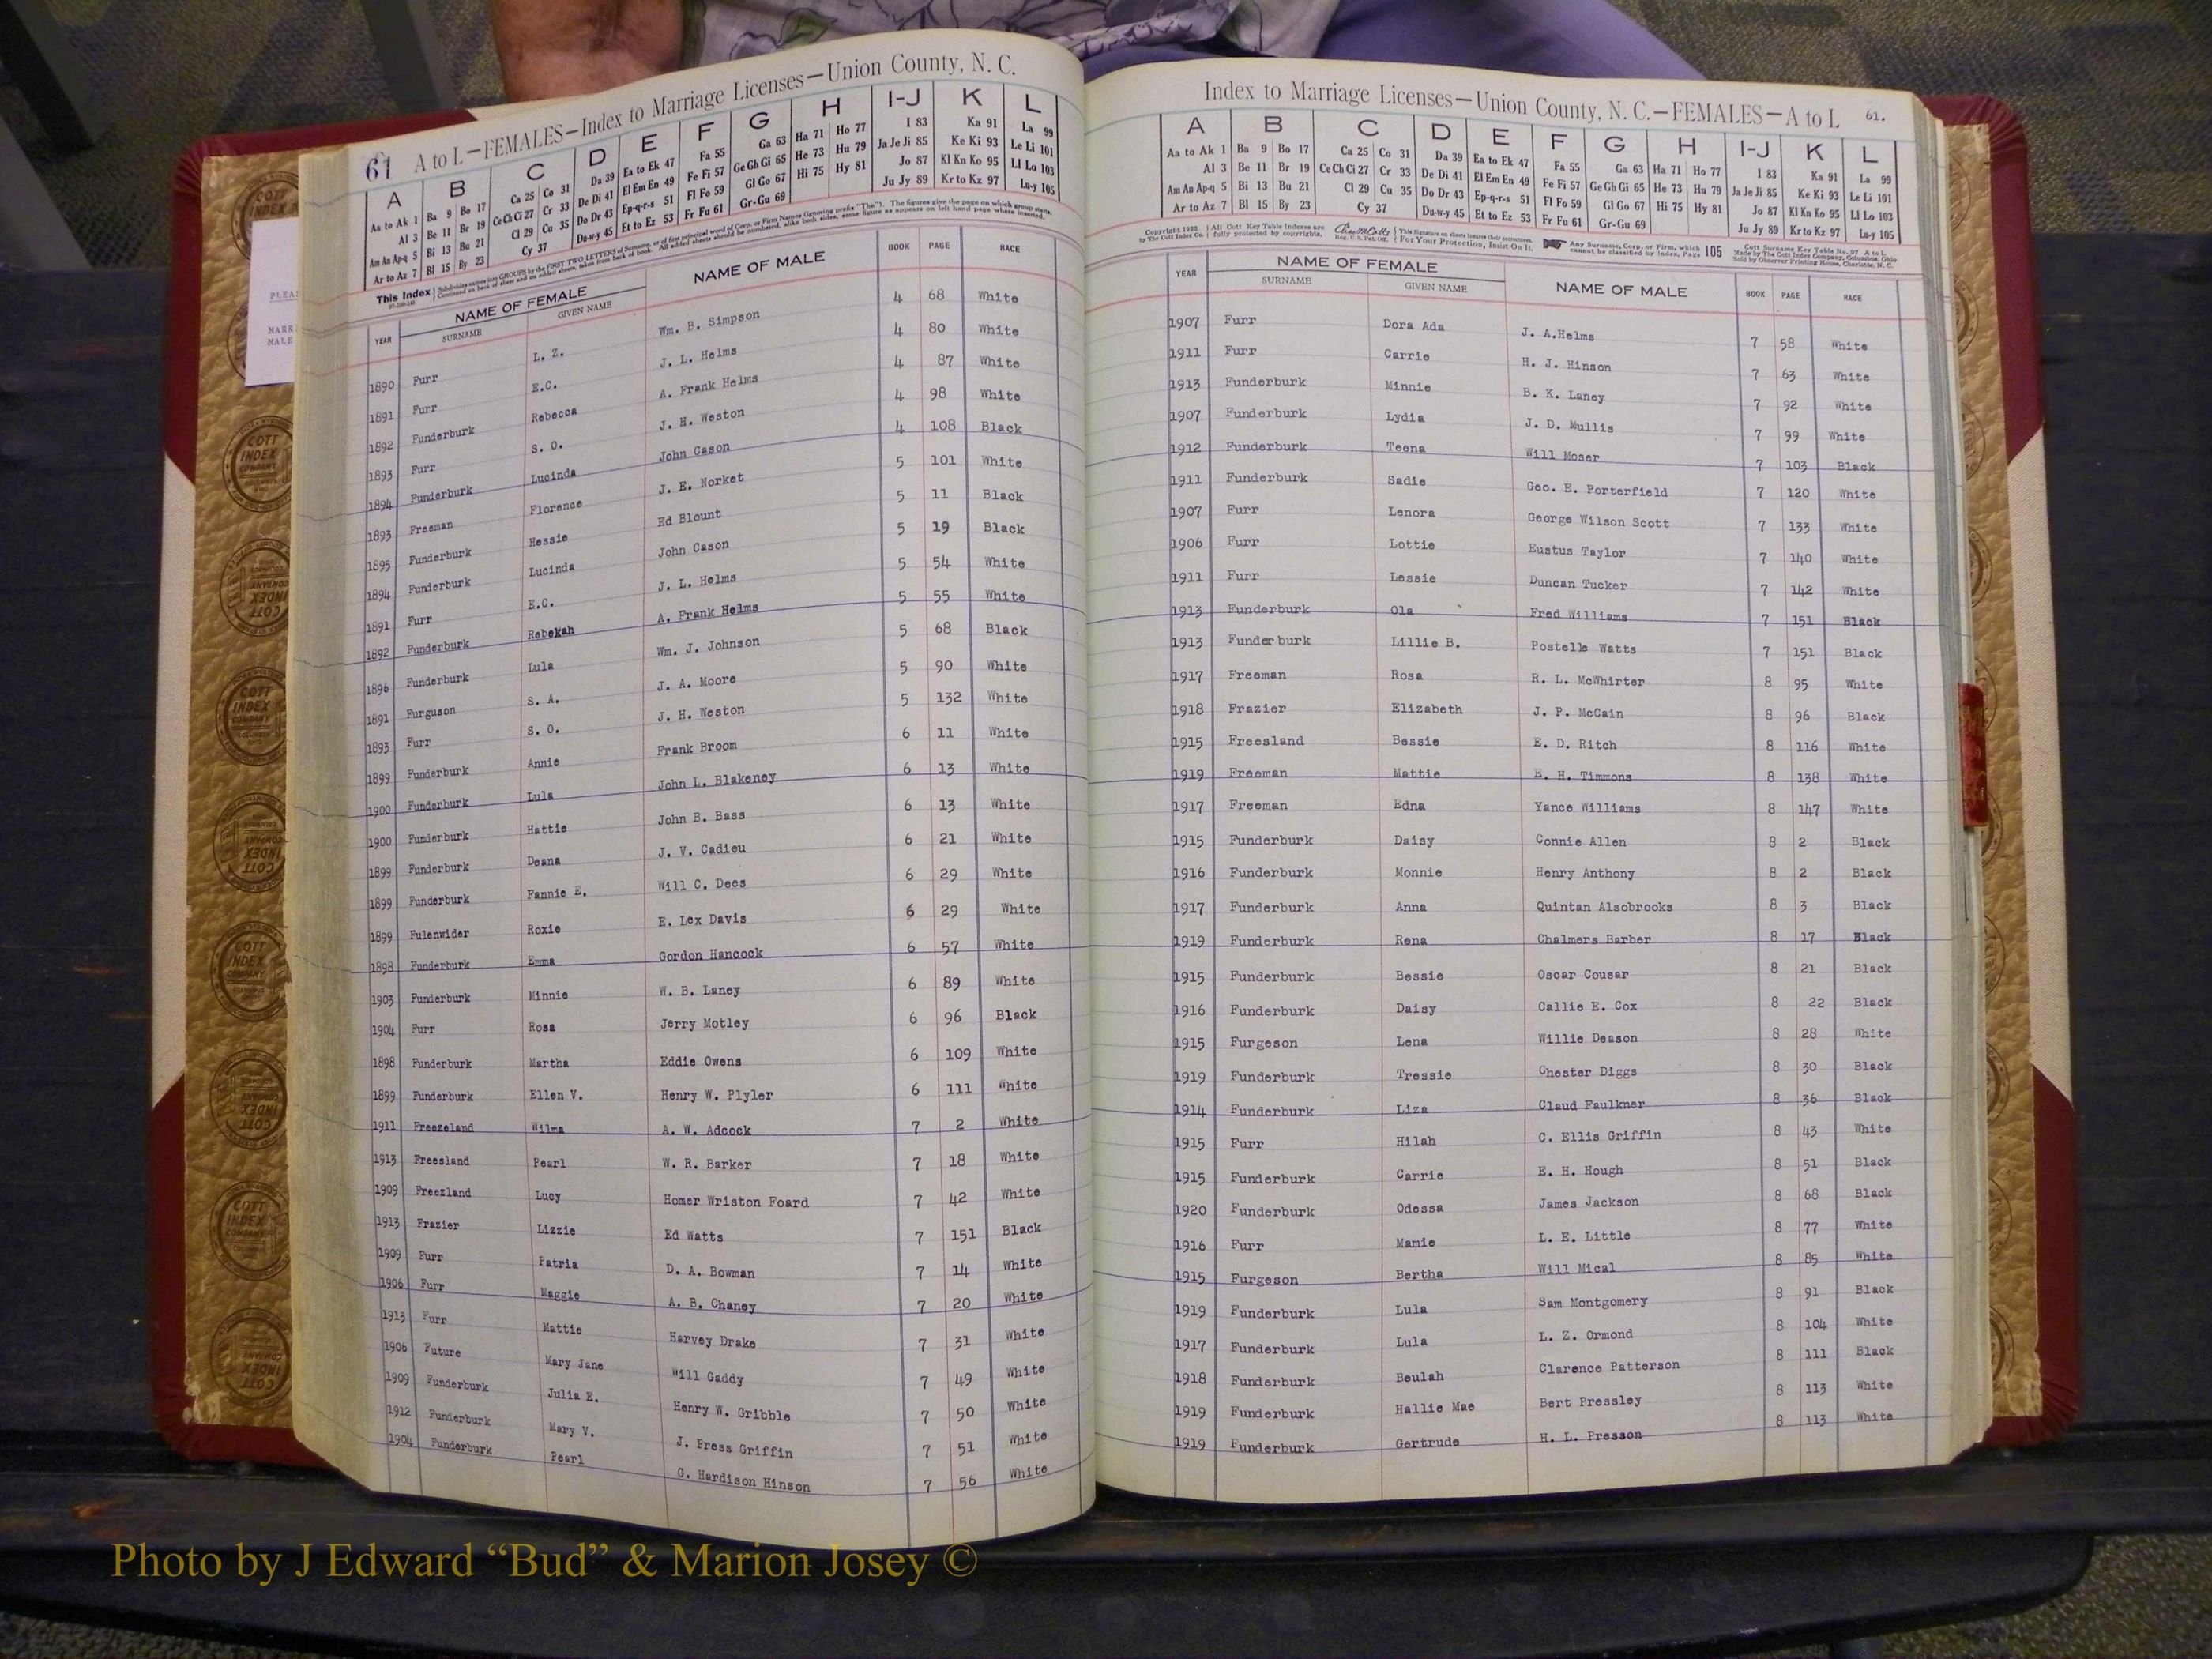 61 A to L—FEMALES—Index to Marriage Licenses—Union County, N. C.
A B C D E F G H I-J K L
Aa to Ak 1 Ba 9 Bo 17 Ca 25 Co 31 Da 39 Ea to Ek 47 Fa 55 Ga 63 Ha 71 Ho 77 I 83 Ka 91 La 99
Al 3 Be 11 Br 19 Ce Ch Ci 27 Cr 33 De Di 41 El Em En 49 Fe Fi 57 Ge Gh Gi 65 He 73 Hu 79 Ja Je Ji 85 Ke Ki 93 Le Li 101
Am An Ap-q 5 Bi 13 Bu 21 Cl 29 Cu 35 Do Dr 43 Ep-q-r-s 51 Fl Fo 59 Gl Go 67 Hi 75 Hy 81 Jo 87 Kl Kn Ko 95 Ll Lo 103
Ar to Az 7 Bl 15 By 23 Cy 37 Du-w-y 45 Et to Ez 53 Fr Fu 61 Gr-Gu 69 Ju Jy 89 Kr to Kz 97 Lu-y 105
This Index
YEAR NAME OF FEMALE NAME OF MALE BOOK PAGE RACE
SURNAME GIVEN NAME
1890 Furr L. Z. Wm. B. Simpson 4 68 White
1891 Furr E.C. J. L. Helms 4 80 White
1892 Funderburk Rebecca A. Frank Helms 4 87 White
1893 Furr S. O. J. H. Weston 4 98 White
1894 Funderburk Lucinda John Cason 4 108 Black
1893 Freeman Florence J. E. Norket 5 101 White
1895 Funderburk Hessie Ed Blount 5 11 Black
1894 Funderburk Lucinda John Cason 5 19 Black
1891 Furr E.C. J. L. Helms 5 54 White
1892 Funderburk Rebekah A. Frank Helms 5 55 White
1896 Funderburk Lula Wm. J. Johnson 5 68 Black
1891 Furguson S. A. J. A. Moore 5 90 White
1893 Furr S. O. J. H. Weston 5 132 White
1899 Funderburk Annie Frank Broom 6 11 White
1900 Funderburk Lula John L. Blakeney 6 13 White
1900 Funderburk Hattie John B. Bass 6 13 White
1899 Funderburk Deana J. V. Cadieu 6 21 White
1899 Funderburk Fannie E. Will C. Dees 6 29 White
1899 Fulenwider Roxie E. Lex Davis 6 29 White
1898 Funderburk Emma Gordon Hancock 6 57 White
1903 Funderburk Minnie W. B. Laney 6 89 White
1904 Furr Rosa Jerry Motley 6 96 Black
1898 Funderburk Martha Eddie Owens 6 109 White
1899 Funderburk Ellen V. Henry W. Plyler 6 111 White
1911 Freezeland Wilma A. W. Adcock 7 2 White
1913 Freesland Pearl W. R. Barker 7 18 White
1909 Freezland Lucy Homer Wriston Foard 7 42 White
1913 Frazier Lizzie Ed Watts 7 151 Black
1909 Furr Patria D. A. Bowman 7 14 White
1906 Furr Maggie A. B. Chaney 7 20 White
1913 Furr Mattie Harvey Drake 7 31 White
1906 Future Mary Jane Will Gaddy 7 49 White
1909 Funderburk Julia E. Henry W. Gribble 7 50 White
1912 Funderburk Mary V. J. Press Griffin 7 51 White
1904 Funderburk Pearl G. Hardison Hinson 7 56 White
Index to Marriage Licenses—Union County, N. C.—FEMALES—A to L 61.
A B C D E F G H I-J K L
Aa to Ak 1 Ba 9 Bo 17 Ca 25 Co 31 Da 39 Ea to Ek 47 Fa 55 Ga 63 Ha 71 Ho 77 I 83 Ka 91 La 99
Al 3 Be 11 Br 19 Ce Ch Ci 27 Cr 33 De Di 41 El Em En 49 Fe Fi 57 Ge Gh Gi 65 He 73 Hu 79 Ja Je Ji 85 Ke Ki 93 Le Li 101
Am An Ap-q 5 Bi 13 Bu 21 Cl 29 Cu 35 Do Dr 43 Ep-q-r-s 51 Fl Fo 59 Gl Go 67 Hi 75 Hy 81 Jo 87 Kl Kn Ko 95 Ll Lo 103
Ar to Az 7 Bl 15 By 23 Cy 37 Du-w-y 45 Et to Ez 53 Fr Fu 61 Gr-Gu 69 Ju Jy 89 Kr to Kz 97 Lu-y 105
For Your Protection, Insist On It. Any Surname, Corp. or Firm, which cannot be classified by Index, Page 105
YEAR NAME OF FEMALE NAME OF MALE BOOK PAGE RACE
SURNAME GIVEN NAME
1907 Furr Dora Ada J. A.Helms 7 58 White
1911 Furr Carrie H. J. Hinson 7 63 White
1913 Funderburk Minnie B. K. Laney 7 92 White
1907 Funderburk Lydia J. D. Mullis 7 99 White
1912 Funderburk Teena Will Moser 7 103 Black
1911 Funderburk Sadie Geo. E. Porterfield 7 120 White
1907 Furr Lenora George Wilson Scott 7 133 White
1906 Furr Lottie Eustus Taylor 7 140 White
1911 Furr Lessie Duncan Tucker 7 142 White
1913 Funderburk Ola Fred Williams 7 151 Black
1913 Funderburk Lillie B. Postelle Watts 7 151 Black
1917 Freeman Rosa R. L. McWhirter 8 95 White
1918 Frazier Elizabeth J. P. McCain 8 96 Black
1915 Freesland Bessie E. D. Ritch 8 116 White
1919 Freeman Mattie E. H. Timmons 8 138 White
1917 Freeman Edna Yance Williams 8 147 White
1915 Funderburk Daisy Connie Allen 8 2 Black
1916 Funderburk Monnie Henry Anthony 8 2 Black
1917 Funderburk Anna Quintan Alsobrooks 8 3 Black
1919 Funderburk Rena Chalmers Barber 8 17 Black
1915 Funderburk Bessie Oscar Cousar 8 21 Black
1916 Funderburk Daisy Callie E. Cox 8 22 Black
1915 Furgeson Lena Willie Deason 8 28 White
1919 Funderburk Tressie Chester Diggs 8 30 Black
1914 Funderburk Liza Claud Faulkner 8 36 Black
1915 Furr Hilah C. Ellis Griffin 8 43 White
1915 Funderburk Carrie E. H. Hough 8 51 Black
1920 Funderburk Odessa James Jackson 8 68 Black
1916 Furr Mamie L. E. Little 8 77 White
1915 Furgeson Bertha Will Mical 8 85 White
1919 Funderburk Lula Sam Montgomery 8 91 Black
1917 Funderburk Lula L. Z. Ormond 8 104 White
1918 Funderburk Beulah Clarence Patterson 8 111 Black
1919 Funderburk Hallie Mae Bert Pressley 8 113 White
1919 Funderburk Gertrude H. L. Presson 8 113 White
COTT INDEX COMPANY
Photo by J Edward “Bud” & Marion Josey ©